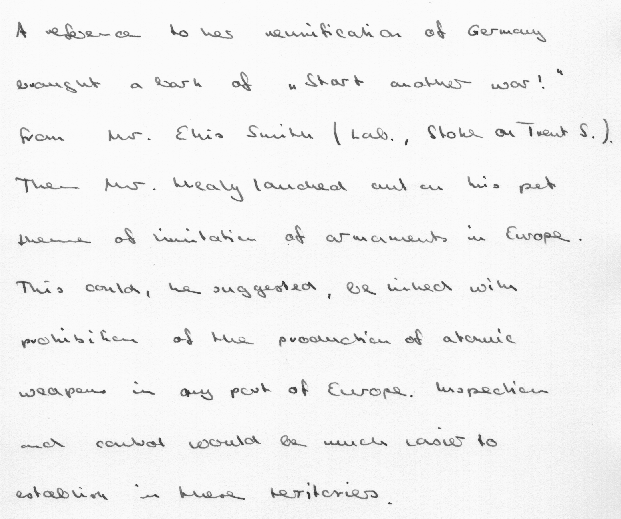 A reference to her reunification of Germany
brought a bark of "Start another war!"
from Mr. Ellis Smith (Lab., Stoke on Trent S.).
Then Mr. Healy lauched out on his pet
theme of limitation of armaments in Europe.
This could, he suggested, be linked with
prohibition of the production of atomic
weapons in any part of Europe. Inspection
and control would be much easier to
establish in these territories.